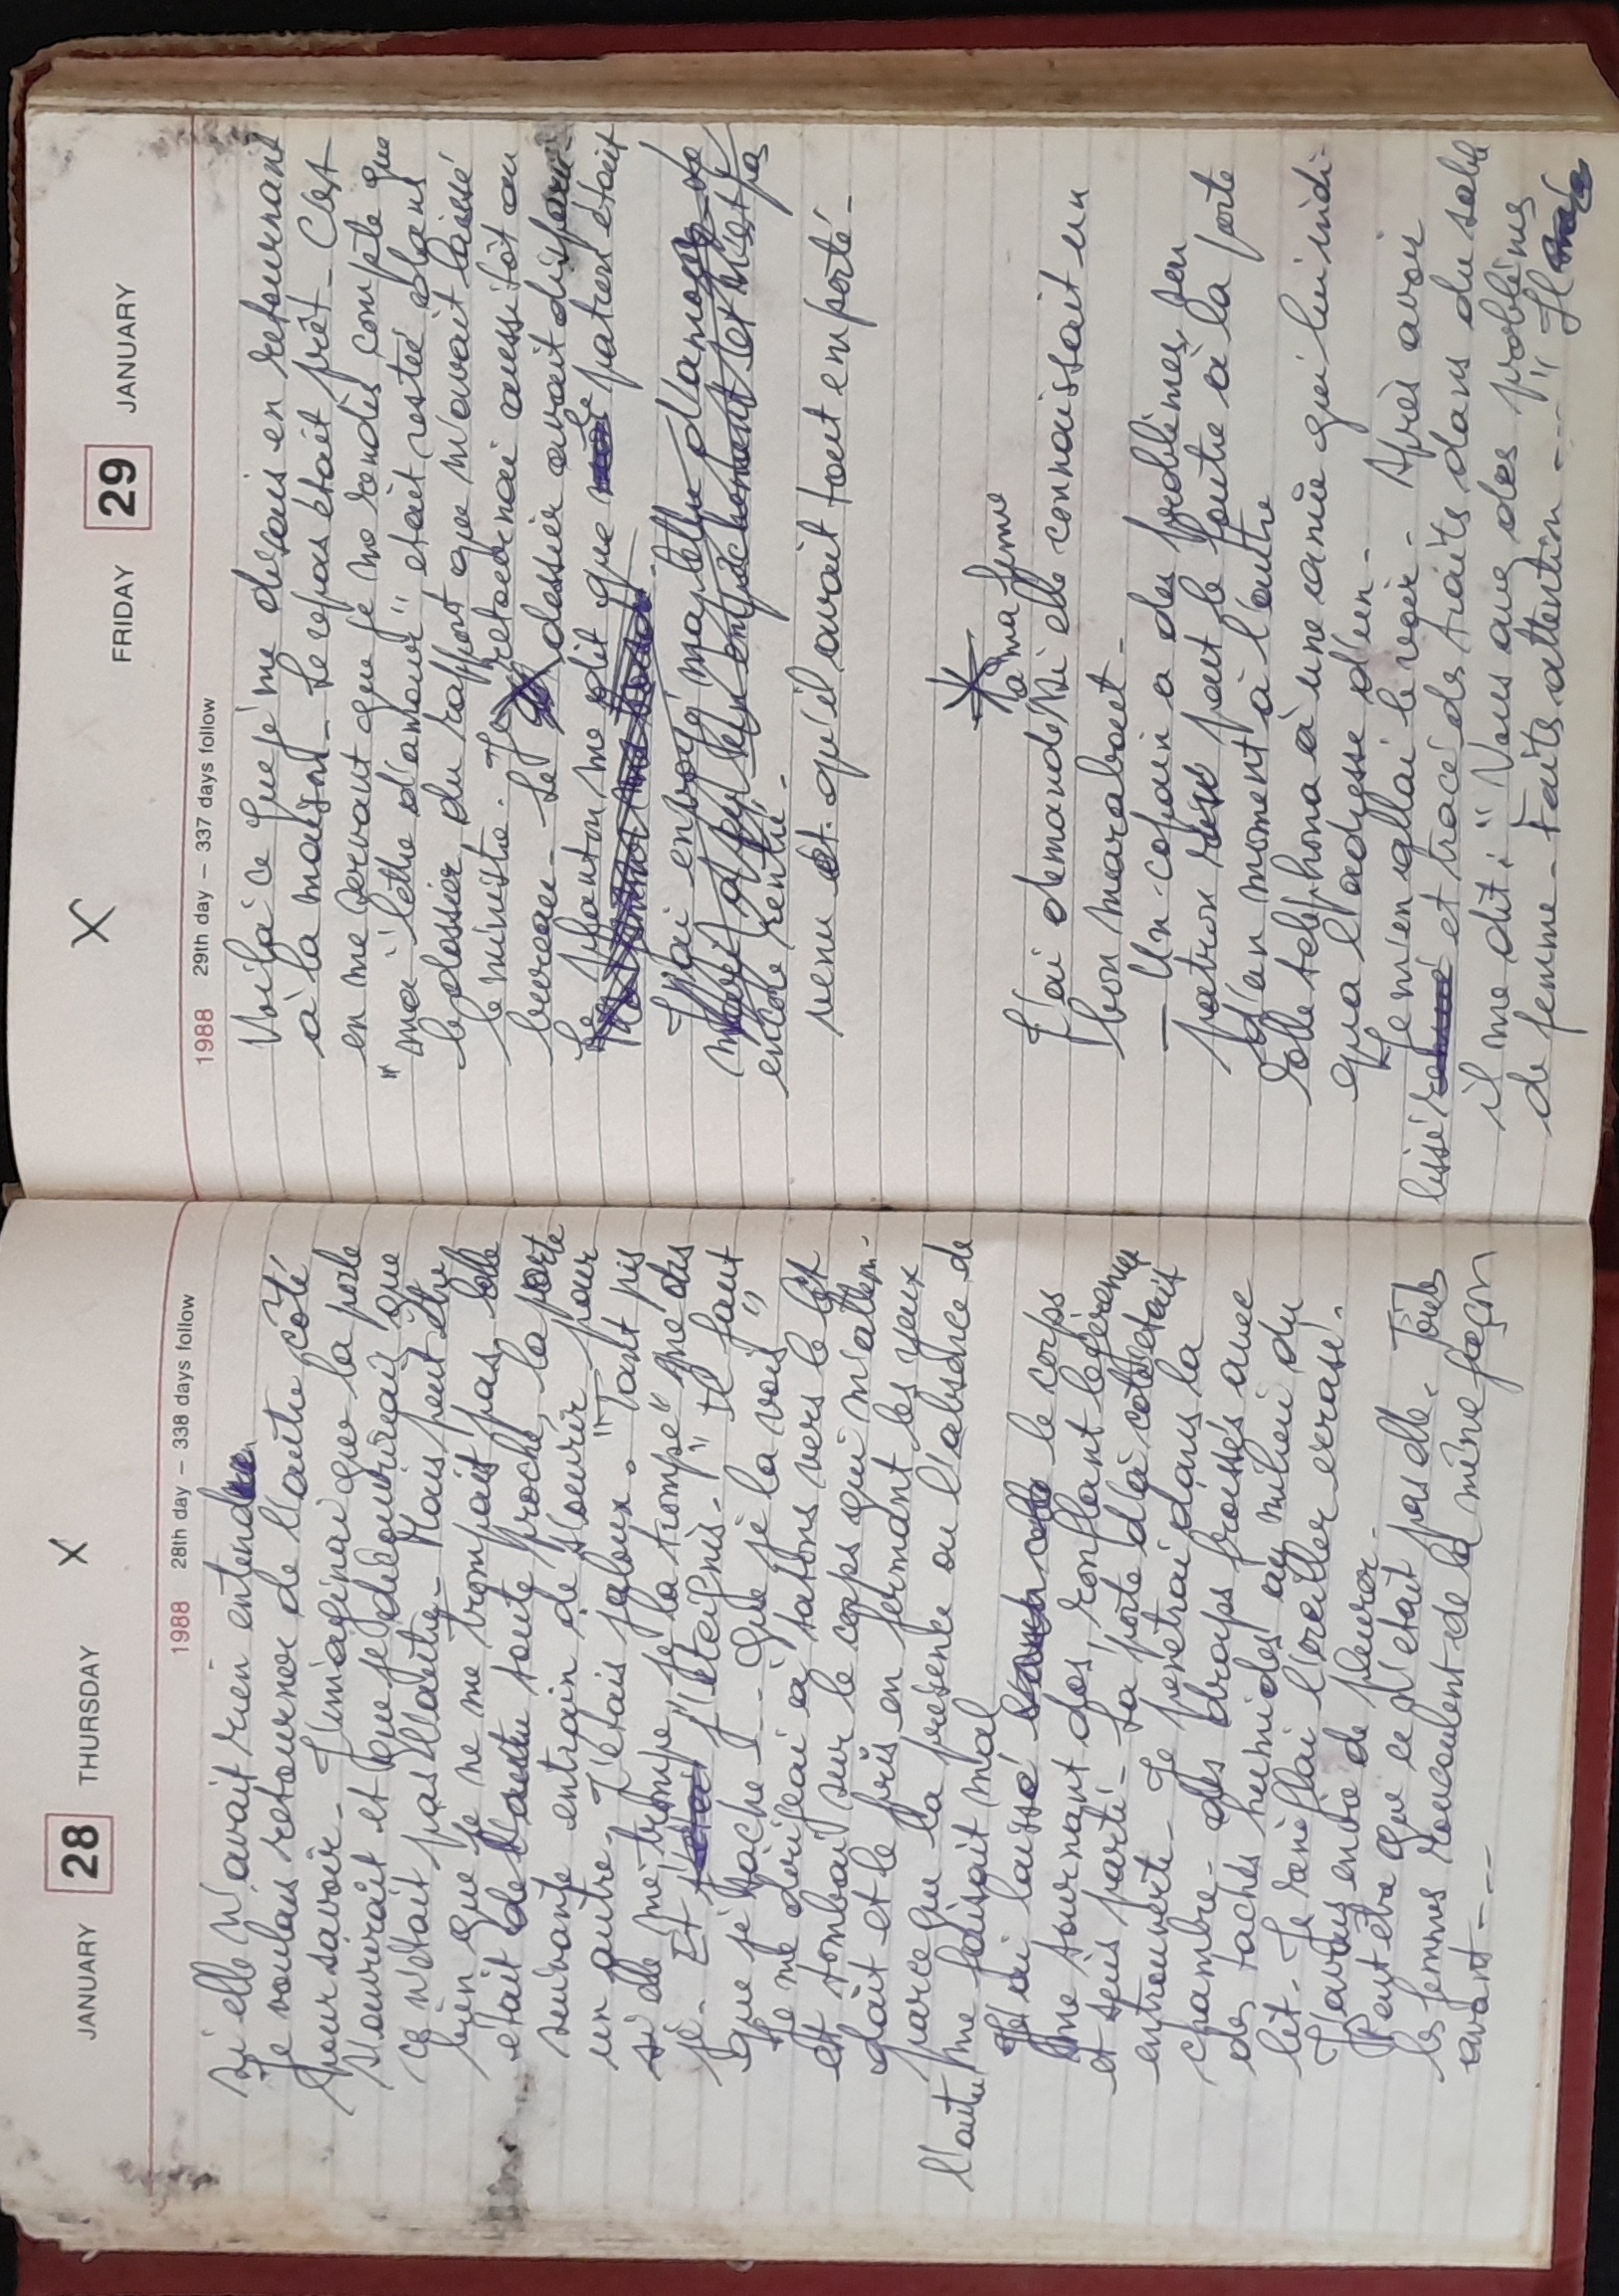 X
JANUARY 28 THURSDAY
1988 28th day – 338 days follow
si elle n'avait rien entendu
Je voulus retourner de l'autre côté
pour savoir – J'imaginai que la porte
s'ouvrirait et que je découvrirais que
ce n'était pas l'autre – Mais peut être
bien que je ne me trompais pas, elle
était de l'autre toute proche, la porte
suivante entrain de s'ouvrir pour
un autre. J'étais jaloux. "Tant pis
si elle me trompe, je la trompe" me dis
je. Et j'éteignis. "Il faut
que je sache – Que je la vois"
Je me dirigeai à tatons vers le lit
et tombai sur le corps qui m'atten-
dait et le pris en fermant les yeux
parce que la présence ou l'absence de
l'autre me faisait mal
J'ai laissé le corps
me tournant dos, ronflant légèrement
et suis parti – La porte d'à côté était
entrouverte – Je penetrai dans la
chambre – des draps froissés avec
des taches humides au milieu du
lit – Je reniflai l'oreiller ecrasé.
J'avais envie de pleurer –
Peut être que ce n'était pas elle. Toutes
les femmes roucoulent de la même façon
avant – – –
X
FRIDAY 29 JANUARY
1988 29th day – 337 days follow
Voilà ce que je me disais en retournant
à la maison – Le repas était prêt – C'est
en me servant que je me rendis compte que
"ma "lettre d'amour" était restée dans
le dossier du rapport que m'avait laissé
le ministre. Je retournai aussitôt au
bureau – Le dossier avait disparu –
Le planton me dit que le patron était
J'ai envoyé ma lettre d'amour
encore rentré –
venu et qu'il avait tout emporté –
*
à ma femme
J'ai demandé si elle connaissait un
bon marabout –
– Un copain a des problèmes, son
patron peut le foutre à la porte
d'un moment à l'autre
Elle téléphona à une amie qui lui indi-
qua l'adresse d'un –
Je m'en allai le voir – Après avoir
lissé et tracé des traits dans du sable
il me dit : "Vous avez des problèmes
de femme – Faites attention – – –" Il